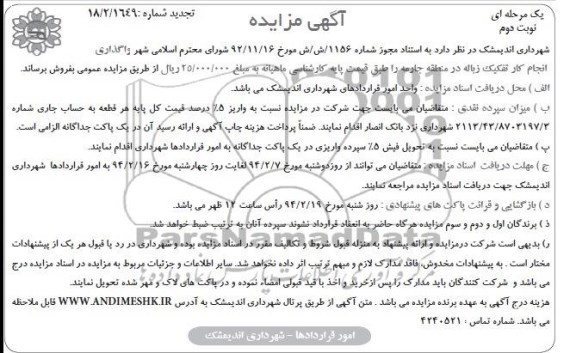 یک مرحله ای
نوبت دوم
آگهی مزایده
تجدید شماره :۱۸/۲/۱۶۴۹
شهرداری اندیمشک در نظر دارد به استناد مجوز شماره ۱۱۵۶/ش/ش مورخ ۹۲/۱۱/۱۶ شورای محترم اسلامی شهر واگذاری
انجام کار تفکیک زباله در منطقه جارمه را طبق قیمت پایه کارشناسی ماهیانه به مبلغ ۲۵/۰۰۰/۰۰۰ ریال از طریق مزایده عمومی بفروش برساند.
الف ) محل دریافت اسناد مزایده : واحد امور قراردادهای شهرداری اندیمشک می باشد.
ب ) میزان سپرده نقدی : متقاضیان می بایست جهت شرکت در مزایده نسبت به واریز ۵٪ درصد قیمت کل پایه هر قطعه به حساب جاری شماره
۲۱۱۳/۴۳/۸۷۰۳۱۹۷/۳ شهرداری نزد بانک انصار اقدام نمایند. ضمناً پرداخت هزینه چاپ آگهی و ارائه رسید آن در یک پاکت جداگانه الزامی است.
پ ) متقاضیان می بایست نسبت به تحویل فیش ۵٪ سپرده واریزی در یک پاکت جداگانه به امور قراردادها شهرداری اقدام نمایند.
ج ) مهلت دریافت اسناد مزایده : متقاضیان می توانند از روزدوشنبه مورخ ۹۴/۲/۷ لغایت روز چهارشنبه مورخ ۹۴/۲/۱۶ به امور قراردادها شهرداری
اندیمشک جهت دریافت اسناد مزایده مراجعه نمایند.
د ) بازگشایی و قرائت پاکت های پیشنهادی : روز شنبه مورخ ۹۴/۲/۱۹ رأس ساعت ۱۲ ظهر می باشد.
ذ ) برندگان اول و دوم و سوم مزایده هرگاه حاضر به انعقاد قرارداد نشوند سپرده آنان به ترتیب ضبط خواهد شد.
ر) بدیهی است شرکت درمزایده و ارائه پیشنهاد به منزله قبول شروط و تکالیف مقرر در اسناد مزایده بوده و شهرداری در رد یا قبول هر یک از پیشنهادات
مختار است . به پیشنهادات مخدوش، فاقد مدارک لازم و مبهم ترتیب اثر داده نخواهد شد. سایر اطلاعات و جزئیات مربوط به مزایده در اسناد مزایده درج
می باشد و شرکت کنندگان باید مدارک را پس ازخرید و اخذ با قید قبولی امضاء نموده و در پاکت های لاک و مهر شده تحویل نمایند.
هزینه درج آگهی به عهده برنده مزایده می باشد . متن آگهی از طریق پرتال شهرداری اندیمشک به آدرس WWW.ANDIMESHK.IR قابل ملاحظه
می باشد. شماره تماس : ۴۲۴۰۵۲۱
امور قراردادها - شهرداری اندیمشک
ParsNamadData